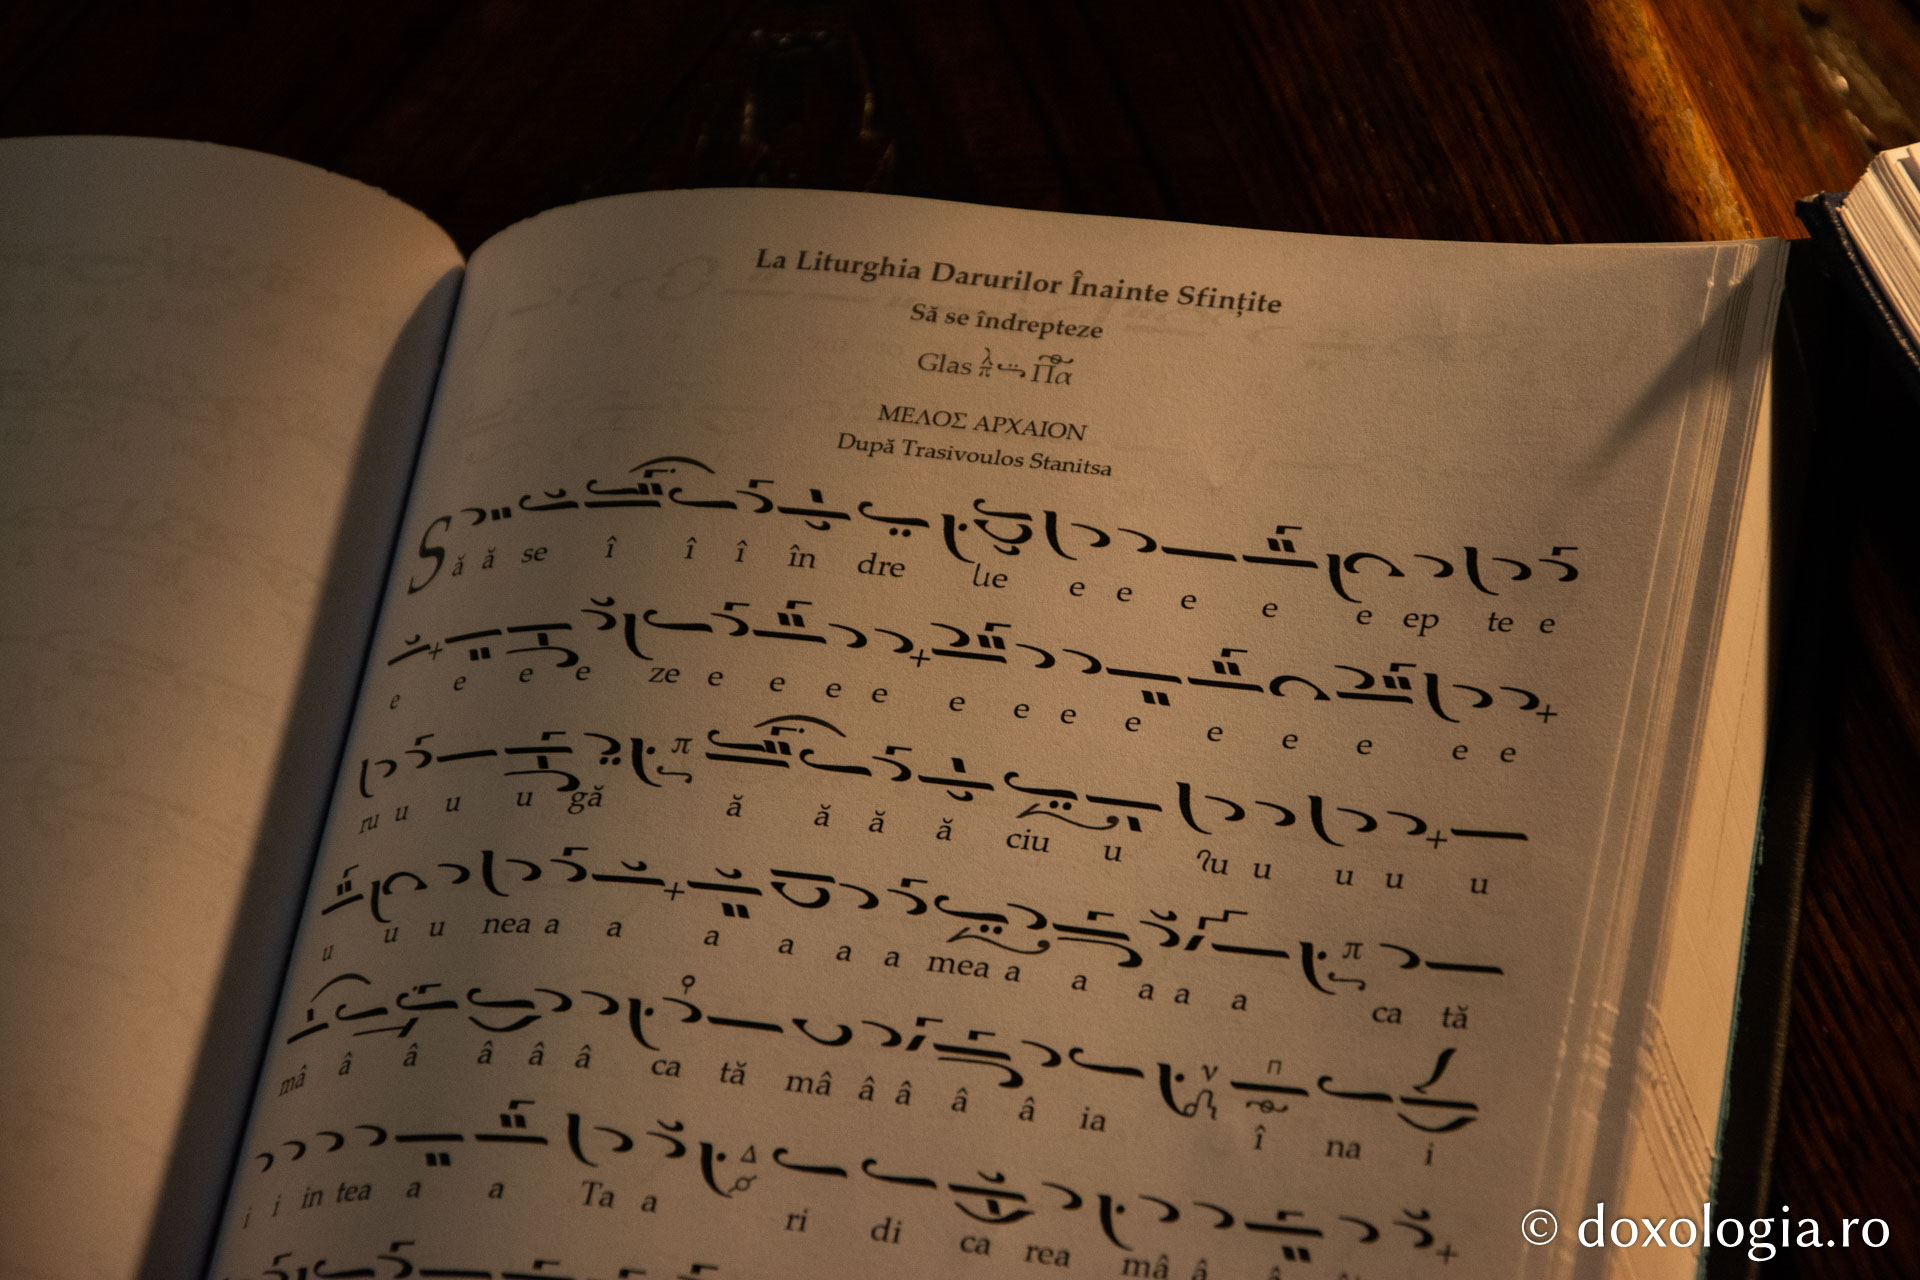 La Liturghia Darurilor Înainte Sfințite
Să se îndrepteze
Glas πα
ΜΕΛΟΣ ΑΡΧΑΙΟΝ
După Trasivoulos Stanitsa
Să ă se î î î în dre e e e e e ep te e
e e e e ze e e e e e e e e e e e e e
ru u u u gă π ă ă ă ă ciu u u u u u
u u u nea a a a a a a mea a a a a a π ca tă
mâ â â â â â ca tă mâ â â â â ia ν π î na i
i i in tea a a Ta a Δ ri di ca rea mâ â
© doxologia.ro